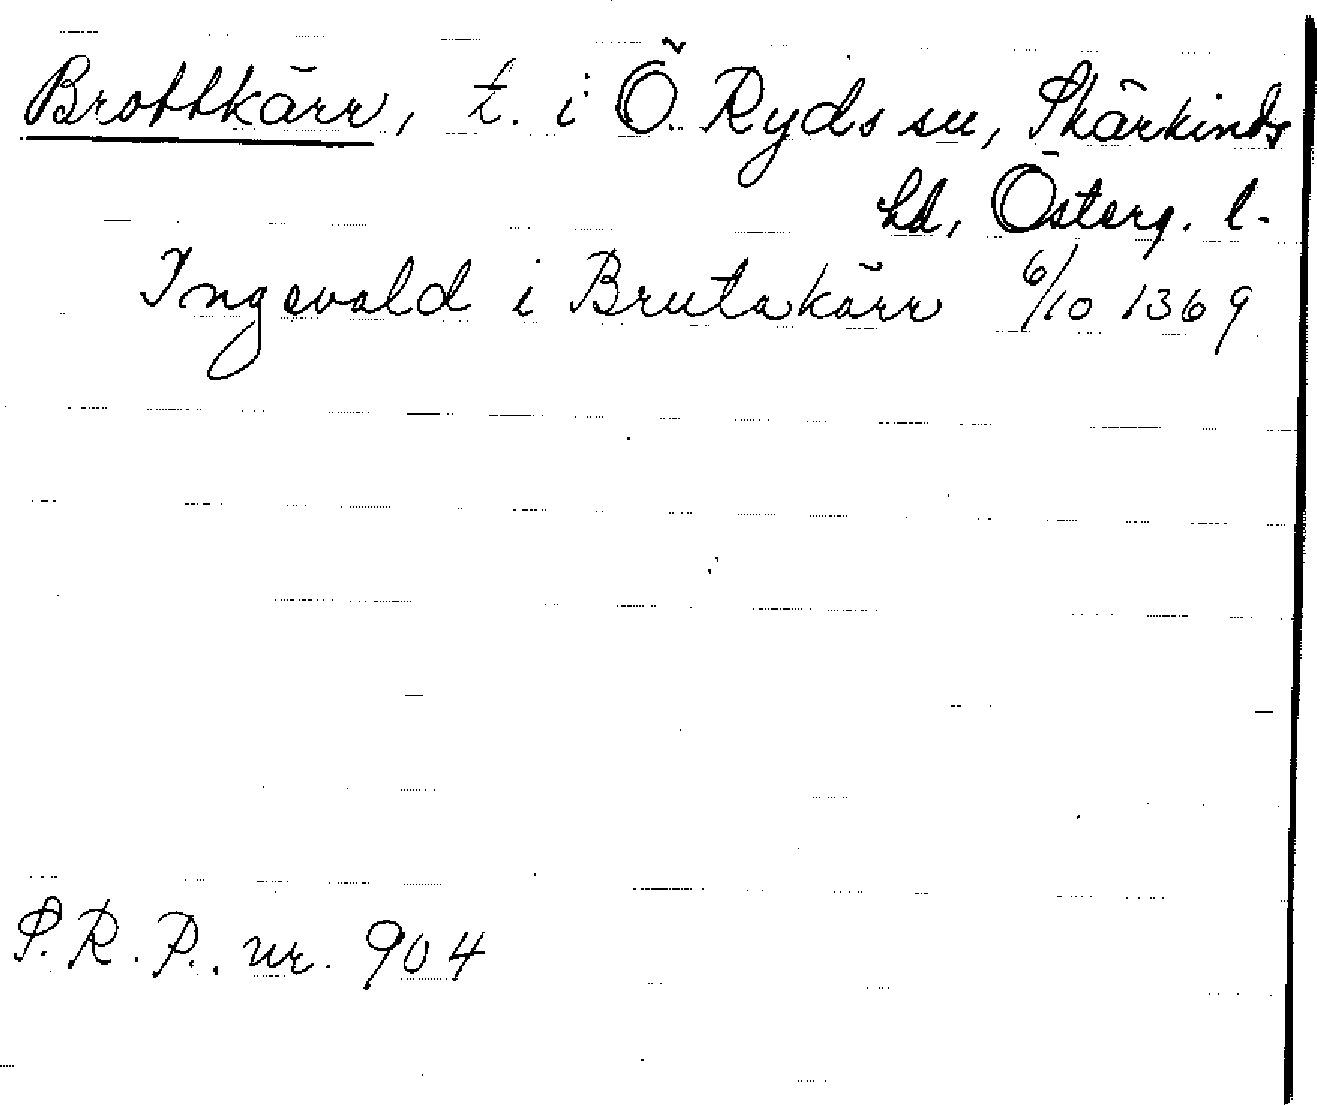 Brottkärr, t. i Ö. Ryds sn, Skärkinds
hd, Österg. l.
Ingevald i Brutakärr 6/10 1369
S.R.P. nr. 904